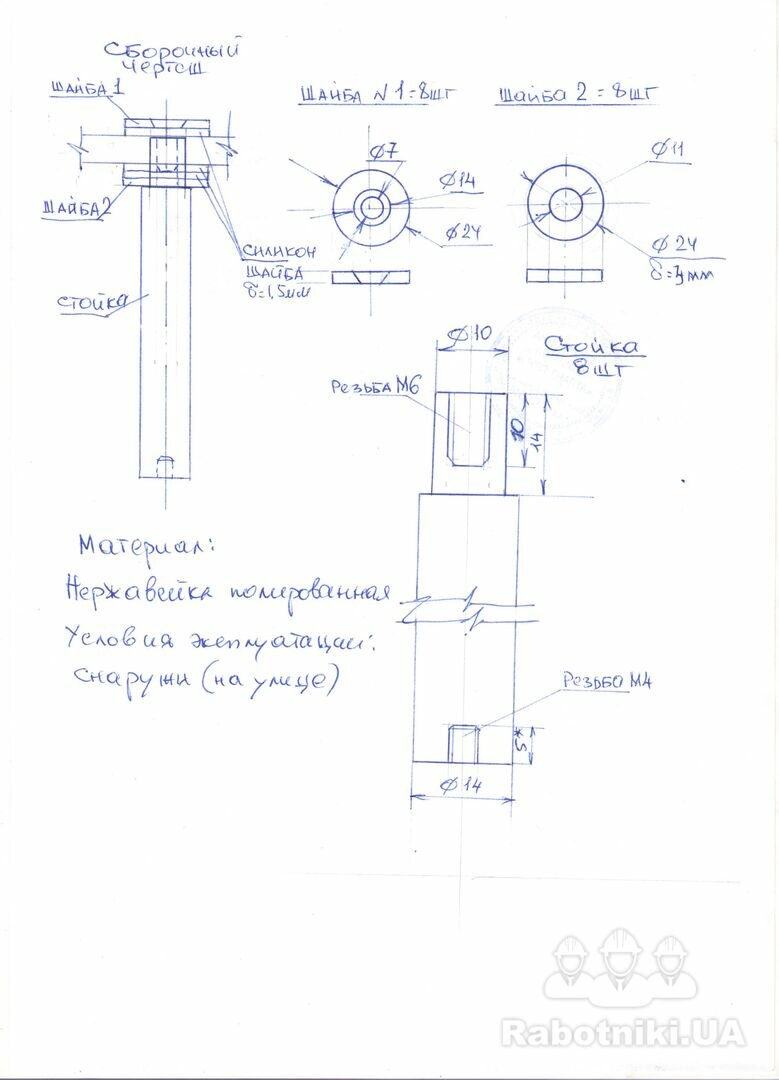 Сборочный
чертеш
Шайба 1
Шайба N1=8шт
Шайба 2=8шт
Ø7
Ø14
Ø24
Ø11
Ø24
Шайба 2
силикон
шайба
δ=1,5мм
стойка
Ø10
Стойка
8шт
Резьба М6
10
14
Материал:
Нержавейка полированная
Условия эксплуатации:
снаружи (на улице)
Резьба М4
5*
Ø14
Rabotniki.UA